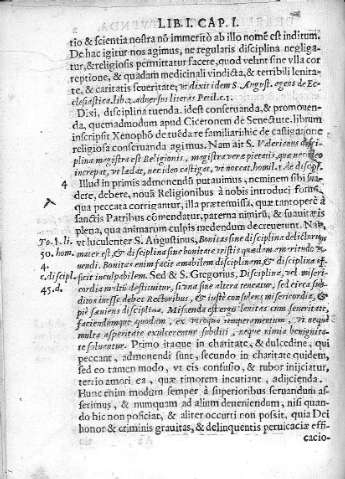 LIB. I. CAP. I.
tio & scientia nostra nō immeritò ab illo nomē est inditum.
De hac igitur nos agimus, ne regularis disciplina negliga-
tur, & religiosis permittatur facere, quod velint sine vlla cor-
reptione, & quadam medicinali vindicta, & terribili lenita-
te, & caritatis seueritate; vt dixit idem S. August. agens de Ec-
clesiastica lib. 2. aduersus literas Petil. c.
Dixi, disciplina tuenda. idest conseruanda, & promouen-
da, quemadmodum apud Ciceronem de Senectute. librum
inscripsit Xenophō de tuēda re familiari: hic de castigatione
religiosa conseruanda agimus. Nam ait S. Valerianus disci-
plina magistra est Religionis, magistra veræ pietatis, quæ nec ideo
increpat, vt lædat, nec ideo castigat, vt noceat. homil. 1. de discipl.
4 Illud in primis admonendū putauimus, neminem sibi sua-
dere, debere, nouā Religionibus à nobis introduci formā,
qua peccata corrigantur, illa prætermissa, quæ tantoperè à
sanctis Patribus cōmendatur, paterna nimirū, & suauitatis
plena, qua animarum culpis medendum decreuerunt. Nam
To. 1. li. vt luculenter S. Augustinus, Bonitas sine disciplina
50. hom. mater est, & disciplina sine bonitate
4 nendi. Bonitas enim facit amabilem disciplinam, & disciplina
c. discipl. sicit inculpabilem. Sed & S. Gregorius, Disciplina, vel miseri-
45. d. cordia multū destituitur, si vna sine altera teneatur, sed circa subdi-
tos inesse debet Rectoribus, & iustè consulens misericordia, &
piè sæuiens disciplina. Miscenda est ergo lenitas cum seueritate,
faciendumque quoddam, ex vtroque temperamentum, vt neque
multa asperitate exulcerentur subditi, neque nimia benignita-
te soluantur. Primo itaque in charitate, & dulcedine, qui
peccant, admonendi sunt, secundo in charitate quidem,
sed eo tamen modo, vt eis confusio, & rubor inijciatur,
tertio amori ea, quæ timorem incutiant, adijcienda.
Hunc enim modum semper à superioribus seruandum as-
serimus, & numquam ad alium deueniendum, nisi quan-
do hic non posciat, & aliter occurri non possit, quia Dei
honor & criminis grauitas, & delinquentis peruicaciæ effi-
cacio-